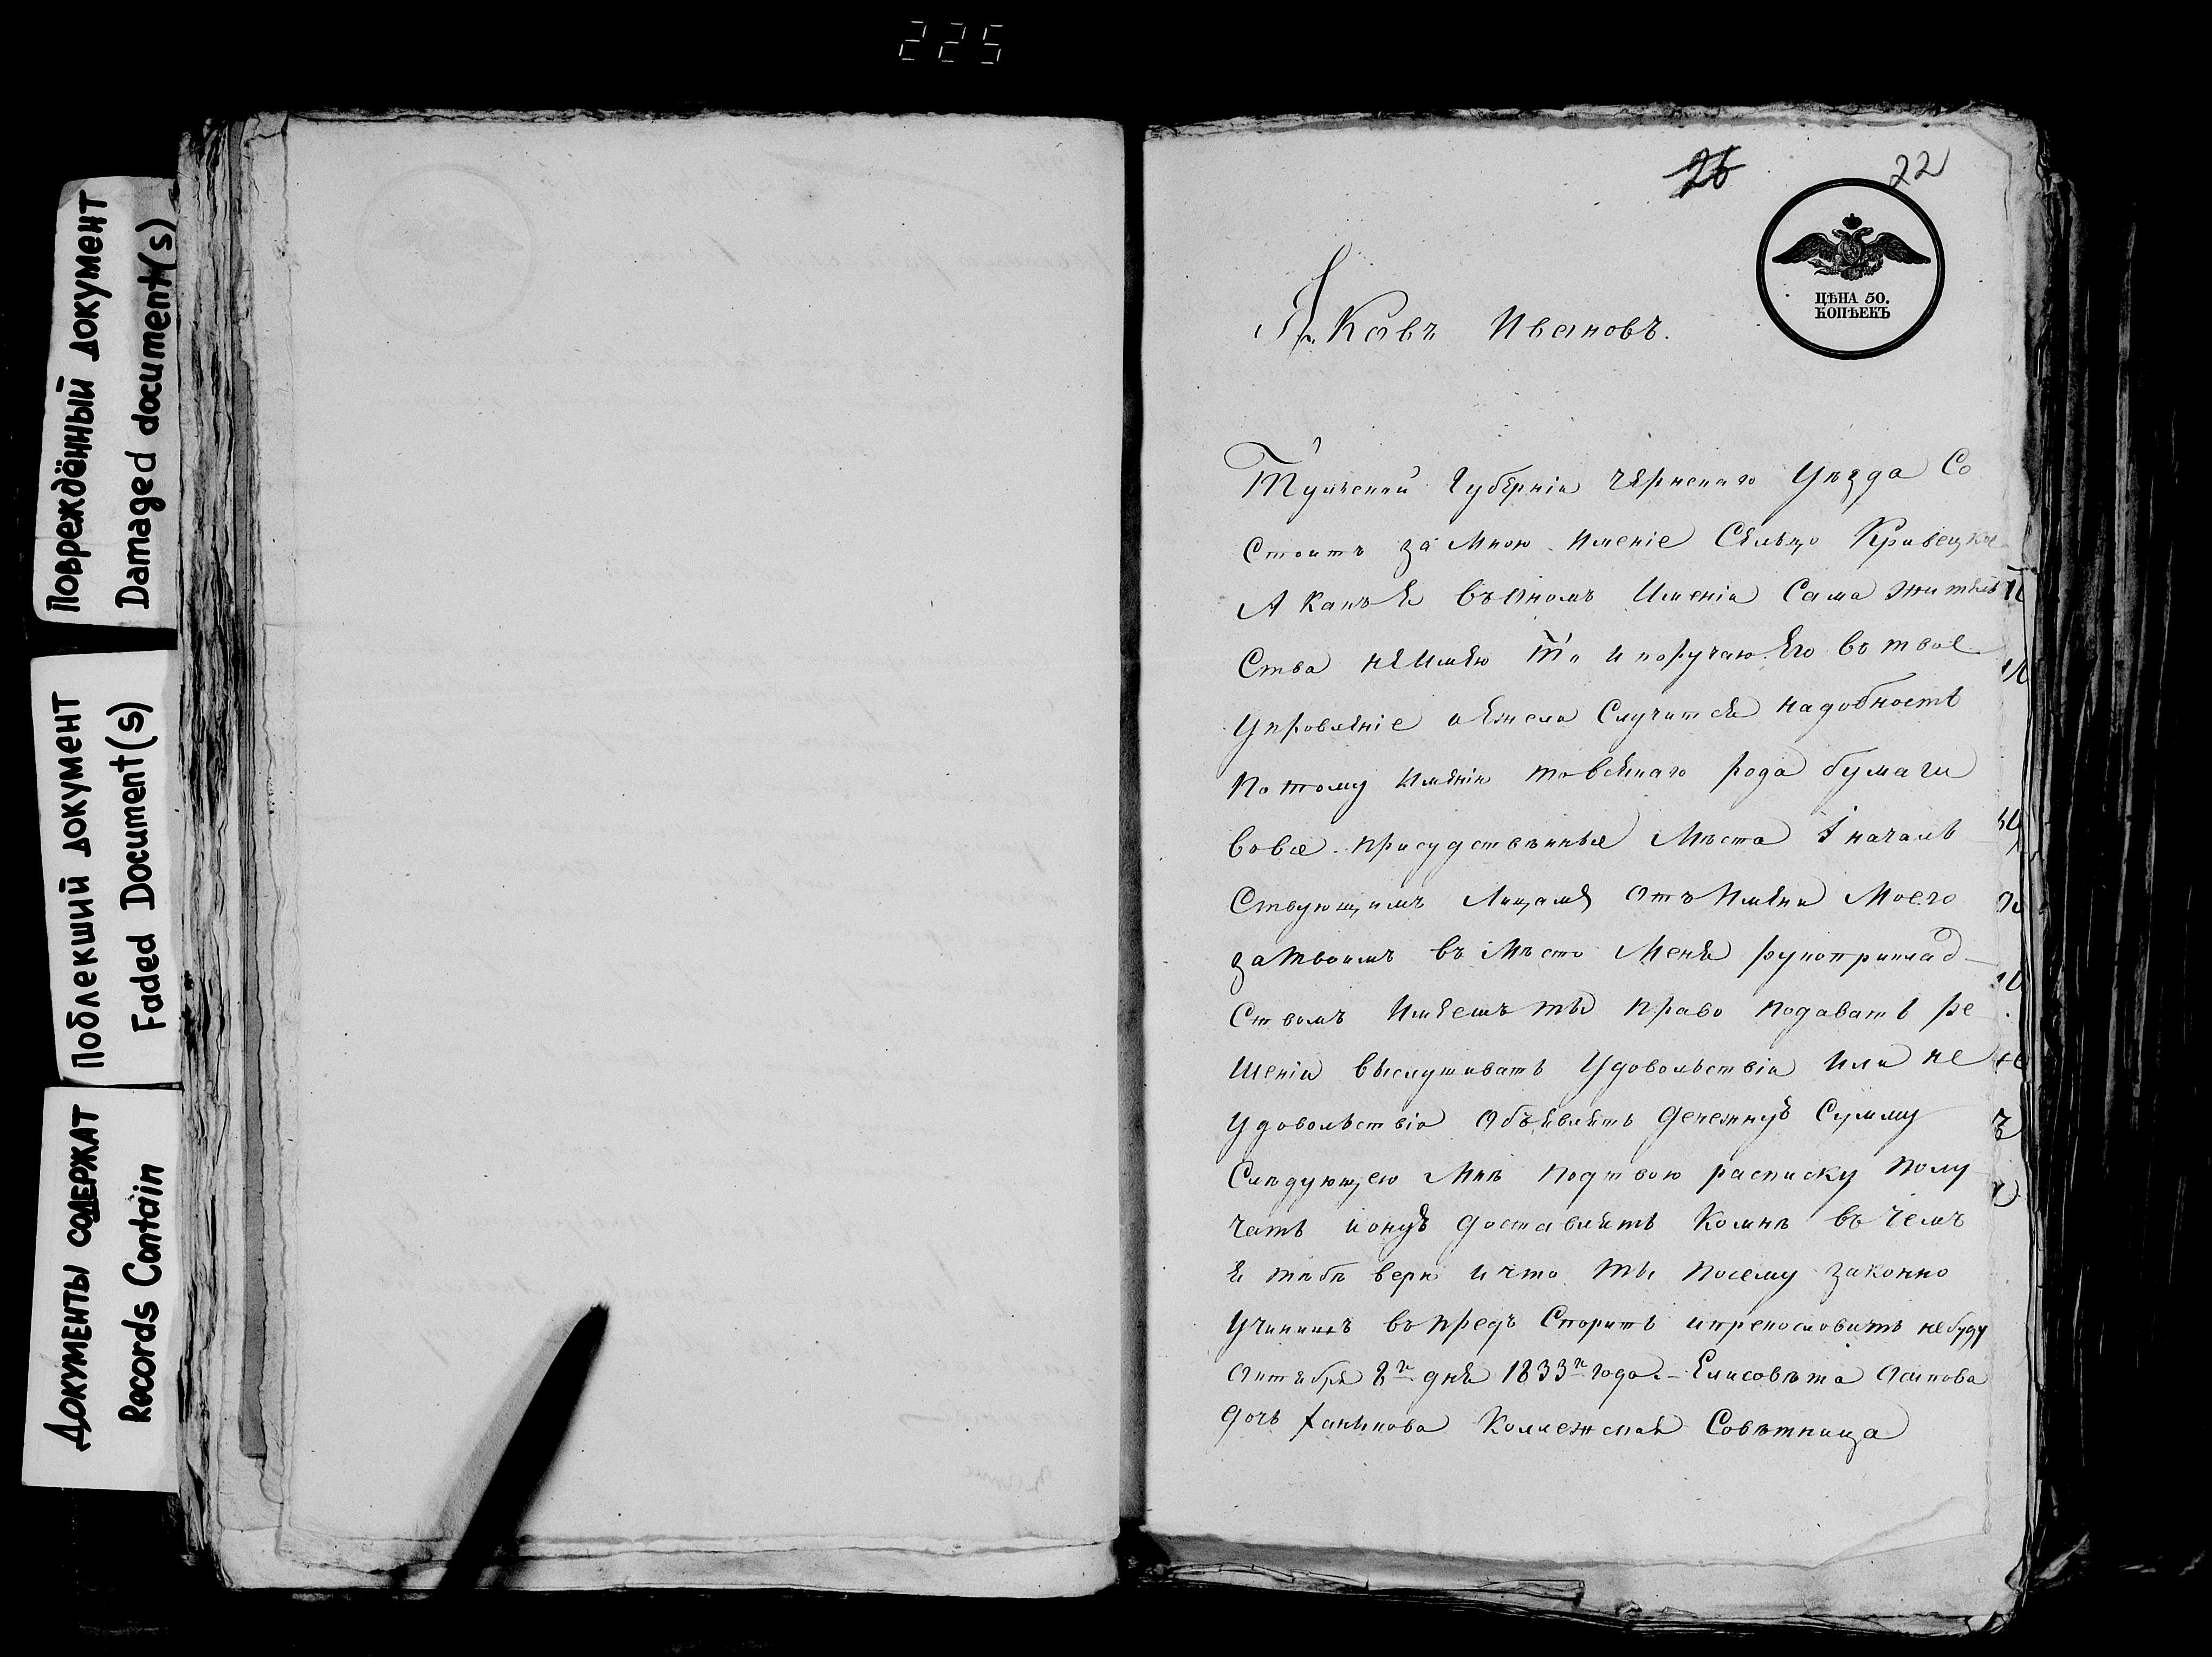 225
Повреждённый документ
Damaged document(s)
Поблекший документ
Faded Document(s)
Документы содержат
Records Contain
26 22
ЦѢНА 50.
КОПѢЕКЪ
Яковъ Ивановъ.
Тульской Губерніи Чернскаго Уѣзда Со
Стоитъ за Мною имение Сельцо
А какъ я въ Ономъ Имѣніи Сама жительс
Ства не имею То и поручаю его во твое
Управленіе а ежели Случится надобность
По тому имѣнію то всякаго рода бумаги
во все присудственныя Мѣста і началь
Ствующимъ Лицамъ отъ Имяни Моего
за твоимъ въ Мѣсто Меня рукоприклад
Ствомъ Имѣешъ ты право подавать ре
шеніи выслушивать Удовольствіи Или не
удовольствіи Объявлять денежную Сумму
Слѣдующею Мнѣ подтвою расписку полу
чать и оную доставлять Комнѣ въ чемъ
я тебѣ верю и что ты посему законно
Учинишъ въ предъ Спорить ипрекословить не буду
Октября 8го дня 1833го года. Елисовѣта Осипова
дочь Ханыкова Коллежская Совѣтница